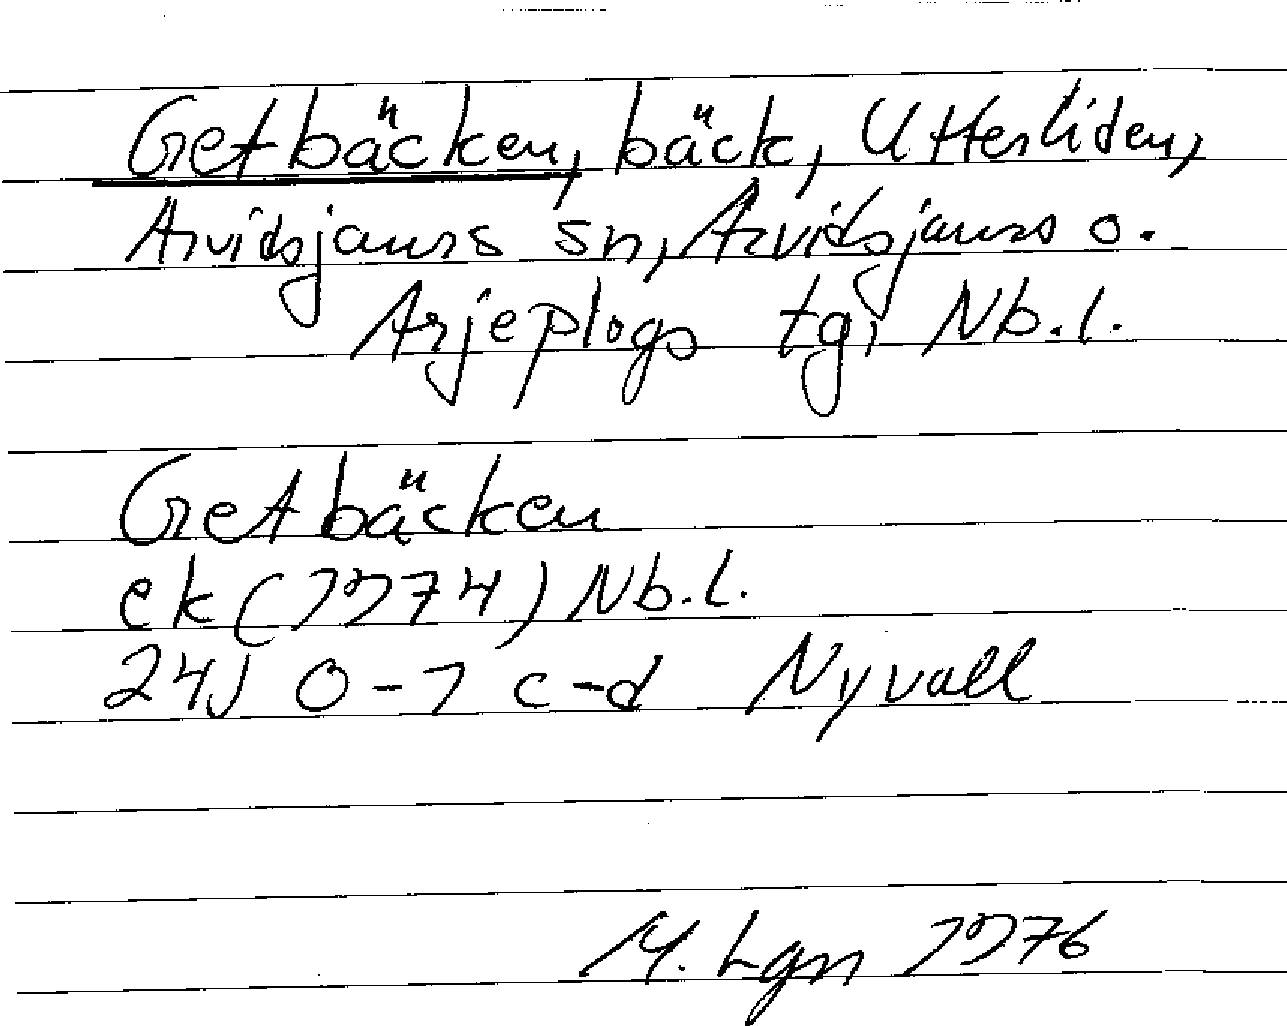 Getbäcken, bäck, Utterliden,
Arvidsjaurs sn, Arvidsjaurs o.
Arjeplogs tg, Nb.l.
Getbäcken
ek (1974) Nb.l.
24J 0-1 c-d Nyvall
M. Lgn 1976